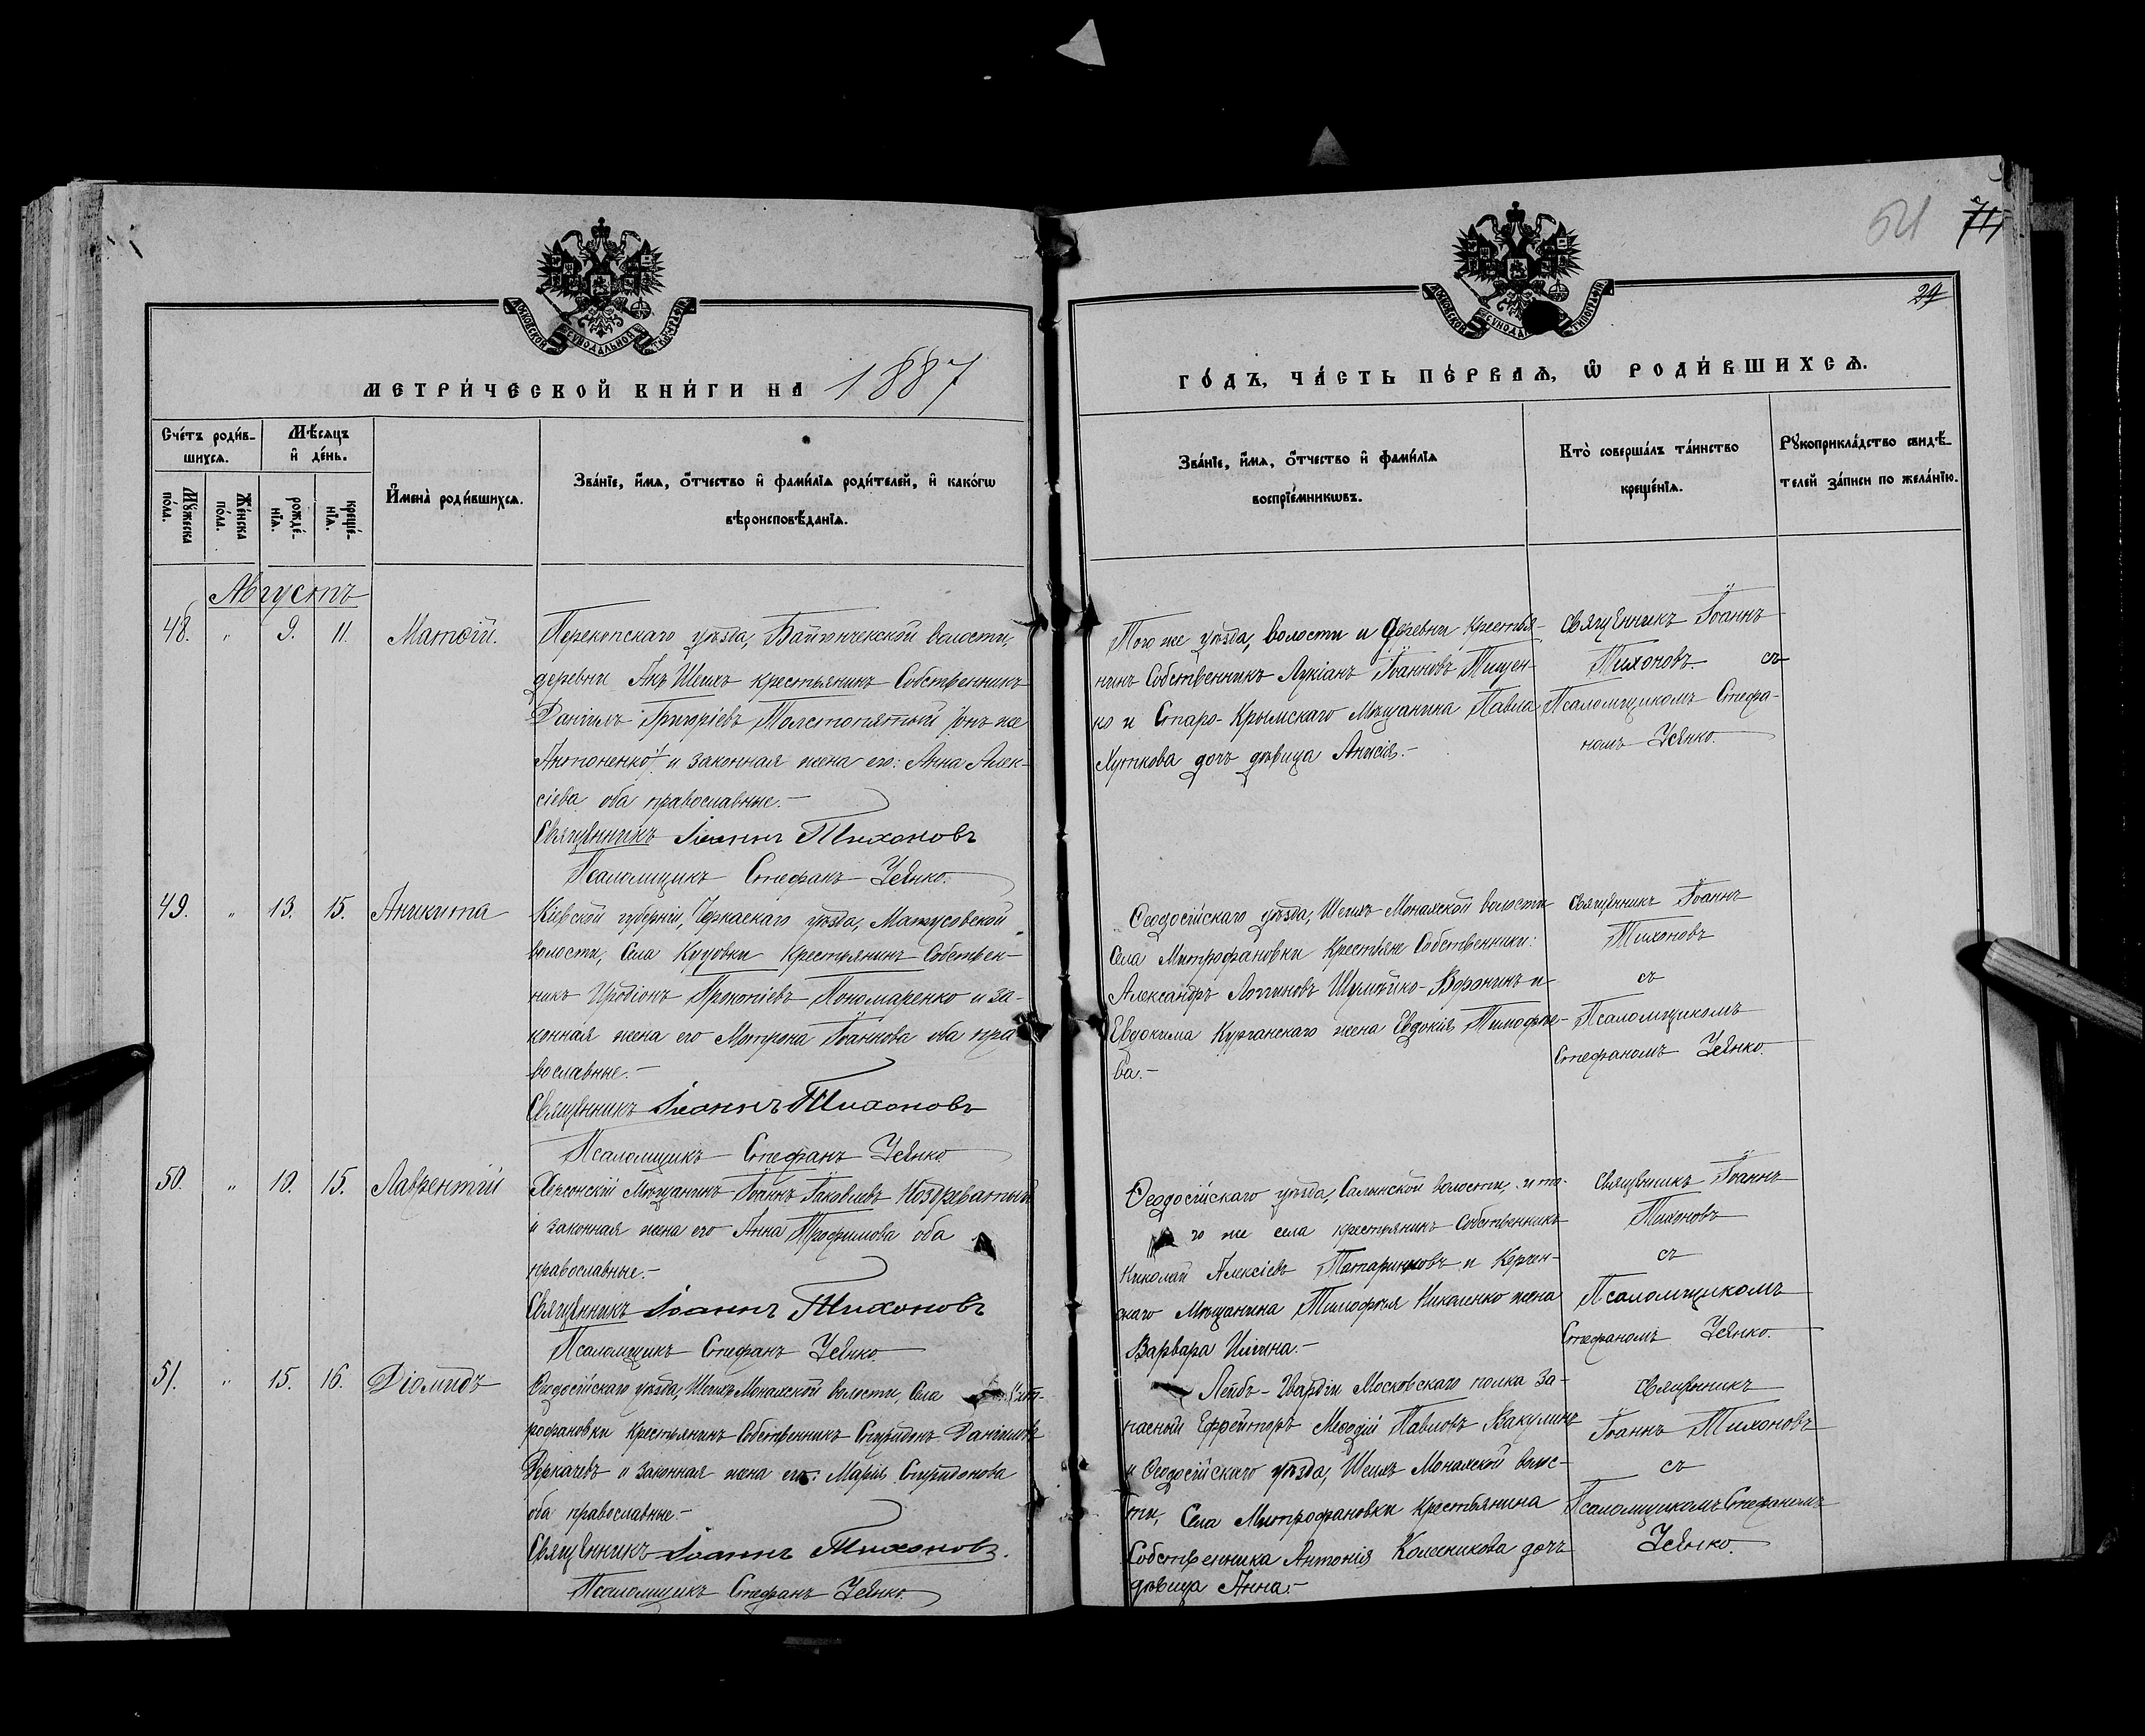 54 71
29
МОСКОВСКОЙ СУНОДАЛЬНОЙ ТИПОГРАФІИ
МЕТРИ́ЧЕСКОЙ КНИ́ГИ НА 1887
Сче́тъ роди́в-
шихсѧ.
Мѣ́сѧцъ
и҆ де́нь.
Мꙋ́жеска
по́ла.
Же́нска
по́ла.
рожде́-
нїѧ.
креще́-
нїѧ.
И҆мена̀ роди́вшихсѧ.
Зва́нїе, и҆́мѧ, ѻ҆́тчество и҆ фами́лїѧ роди́телей, и҆ како́гѡ
вѣроисповѣ́данїѧ.
Августъ
48. " 9. 11. Матѳій.
Перекопскаго уѣзда, волости,
деревни Шеихъ крестьянинъ Собственникъ
Даніилъ Григоріевъ Толстопятый /онъ же
Антоненко/ и законная жена его: Анна Алек-
сіева оба православные.-
Священникъ Іоаннъ Тихоновъ
Псаломщикъ Стефанъ
49. " 13. 15. Аникита
Кіевской губерніи, Черкаскаго уѣзда, Матусовской
волости, Села Крестьянинъ Собствен-
никъ Иродіонъ Прокопіевъ Пономаренко и за-
конная жена его Матрона Іоаннова оба пра
вославные.-
Священникъ Іоаннъ Тихоновъ
Псаломщикъ Стефанъ
50. " 10. 15. Лаврентій
Херсонскій Мѣщанинъ Іоаннъ Іаковлевъ Ноздреватый
и законная жена его Анна Трофимова оба
православные.-
Священникъ Іоаннъ Тихоновъ
Псаломщикъ Стефанъ
51. " 15. 16. Діомидъ
Ѳеодосійскаго уѣзда, Шеихъ Монахской волости, Села Мит-
рофановки Крестьянинъ Собственникъ Спиридонъ Даніиловъ
Деркачевъ и законная жена его: Марія Спиридонова
оба православные.-
Священникъ Іоаннъ Тихоновъ.
Псаломщикъ Стефанъ
МОСКОВСКОЙ СУНОДАЛЬНОЙ ТИПОГРАФІИ
ГО́ДЪ, ЧА́СТЬ ПЕ́РВАѦ, Ѡ҆ РОДИ́ВШИХСѦ.
Зва́нїе, и҆́мѧ, ѻ҆́тчество и҆ фами́лїѧ
воспрїе́мникѡвъ.
Кто̀ соверша́лъ та́инство
креще́нїѧ.
Рꙋкоприкла́дство свидѣ́-
телей за́писи по жела́нїю.
Того же уѣзда, волости и деревни Крестья-
нинъ Собственникъ Лукіанъ Іоанновъ Тищен-
ко и Старо-Крымскаго Мѣщанина Павла
дочь дѣвица
Священникъ Іоаннъ
Тихоновъ съ
Псаломщикомъ Стефа-
номъ
Ѳеодосійскаго уѣзда, Шеихъ Монахской волости
Села Митрофановки Крестьяне Собственники:
Александръ Воронинъ и
Евдокима Курганскаго жена Евдокія Тимофѣе-
ва.-
Священникъ Іоаннъ
Тихоновъ
съ
Псаломщикомъ
Стефаномъ
Ѳеодосійскаго уѣзда, волости, и то-
го же села крестьянинъ Собственникъ
Николай Алексіевъ Татариновъ и Керчен-
скаго Мѣщанина Тимофея Николенко жена
Варвара Ильина.-
Священникъ Іоаннъ
Тихоновъ
съ
Псаломщикомъ
Стефаномъ
Лейбъ-Гвардіи Московскаго полка За-
пасный Ефрейторъ Меѳодій Павловъ Вакулинъ
и Ѳеодосійскаго уѣзда, Шеихъ Монахской волос-
ти, Села Митрофановки Крестьянина
Собственника Антонія Колесникова дочь
дѣвица Анна.-
Священникъ
Іоаннъ Тихоновъ
съ
Псаломщикомъ Стефаномъ